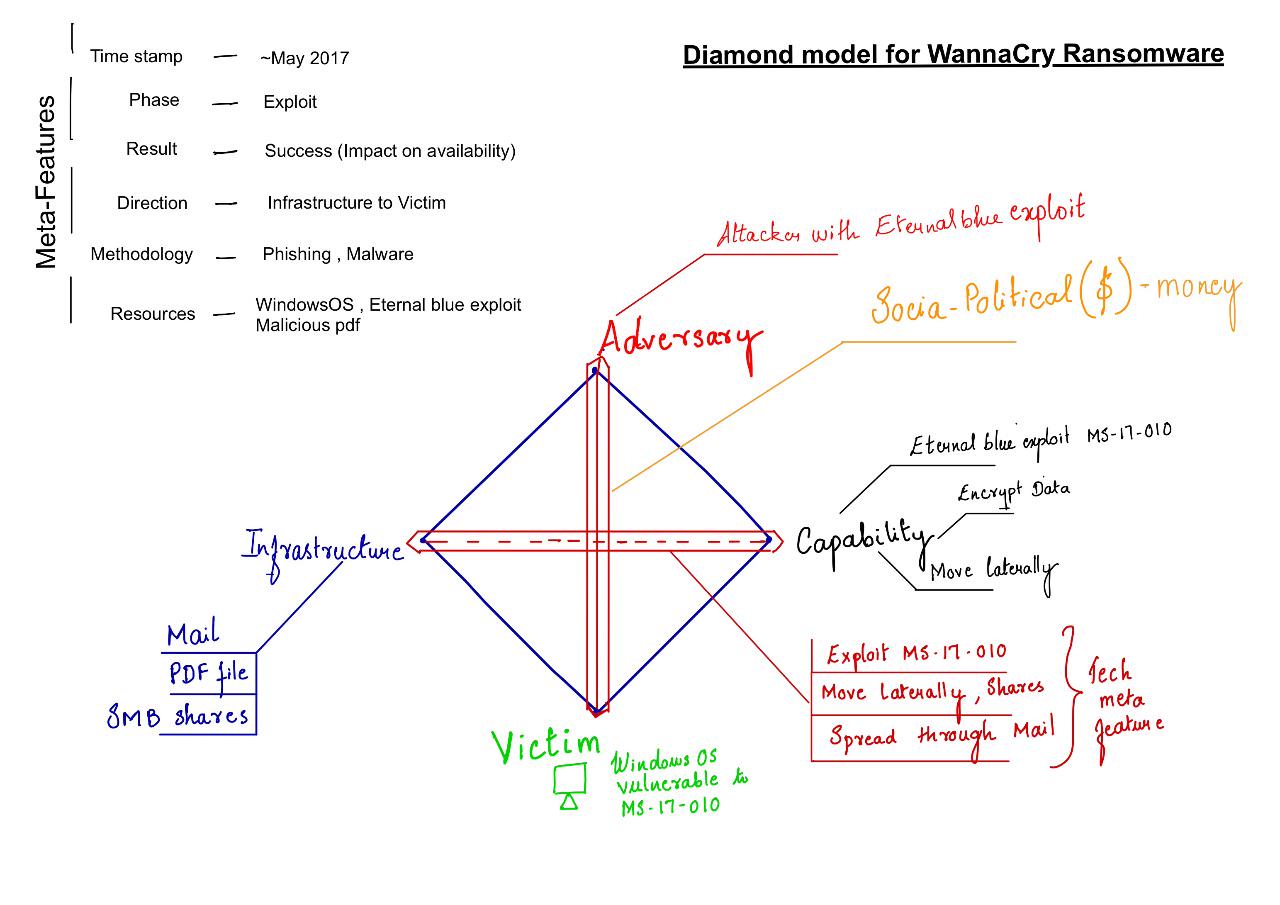 Diamond model for WannaCry Ransomware
Meta-Features
Time stamp — ~May 2017
Phase — Exploit
Result — Success (Impact on availability)
Direction — Infrastructure to Victim
Methodology — Phishing , Malware
Resources — WindowsOS , Eternal blue exploit
Malicious pdf
Attacker with Eternalblue exploit
Socia-Political ($) - money
Adversary
Eternal blue exploit MS-17-010
Encrypt Data
Capability
Move laterally
Infrastructure
Mail
PDF file
SMB shares
Exploit MS-17-010
Move laterally, Shares
Spread through Mail
Tech
meta
feature
Victim
Windows OS
vulnerable to
MS-17-010